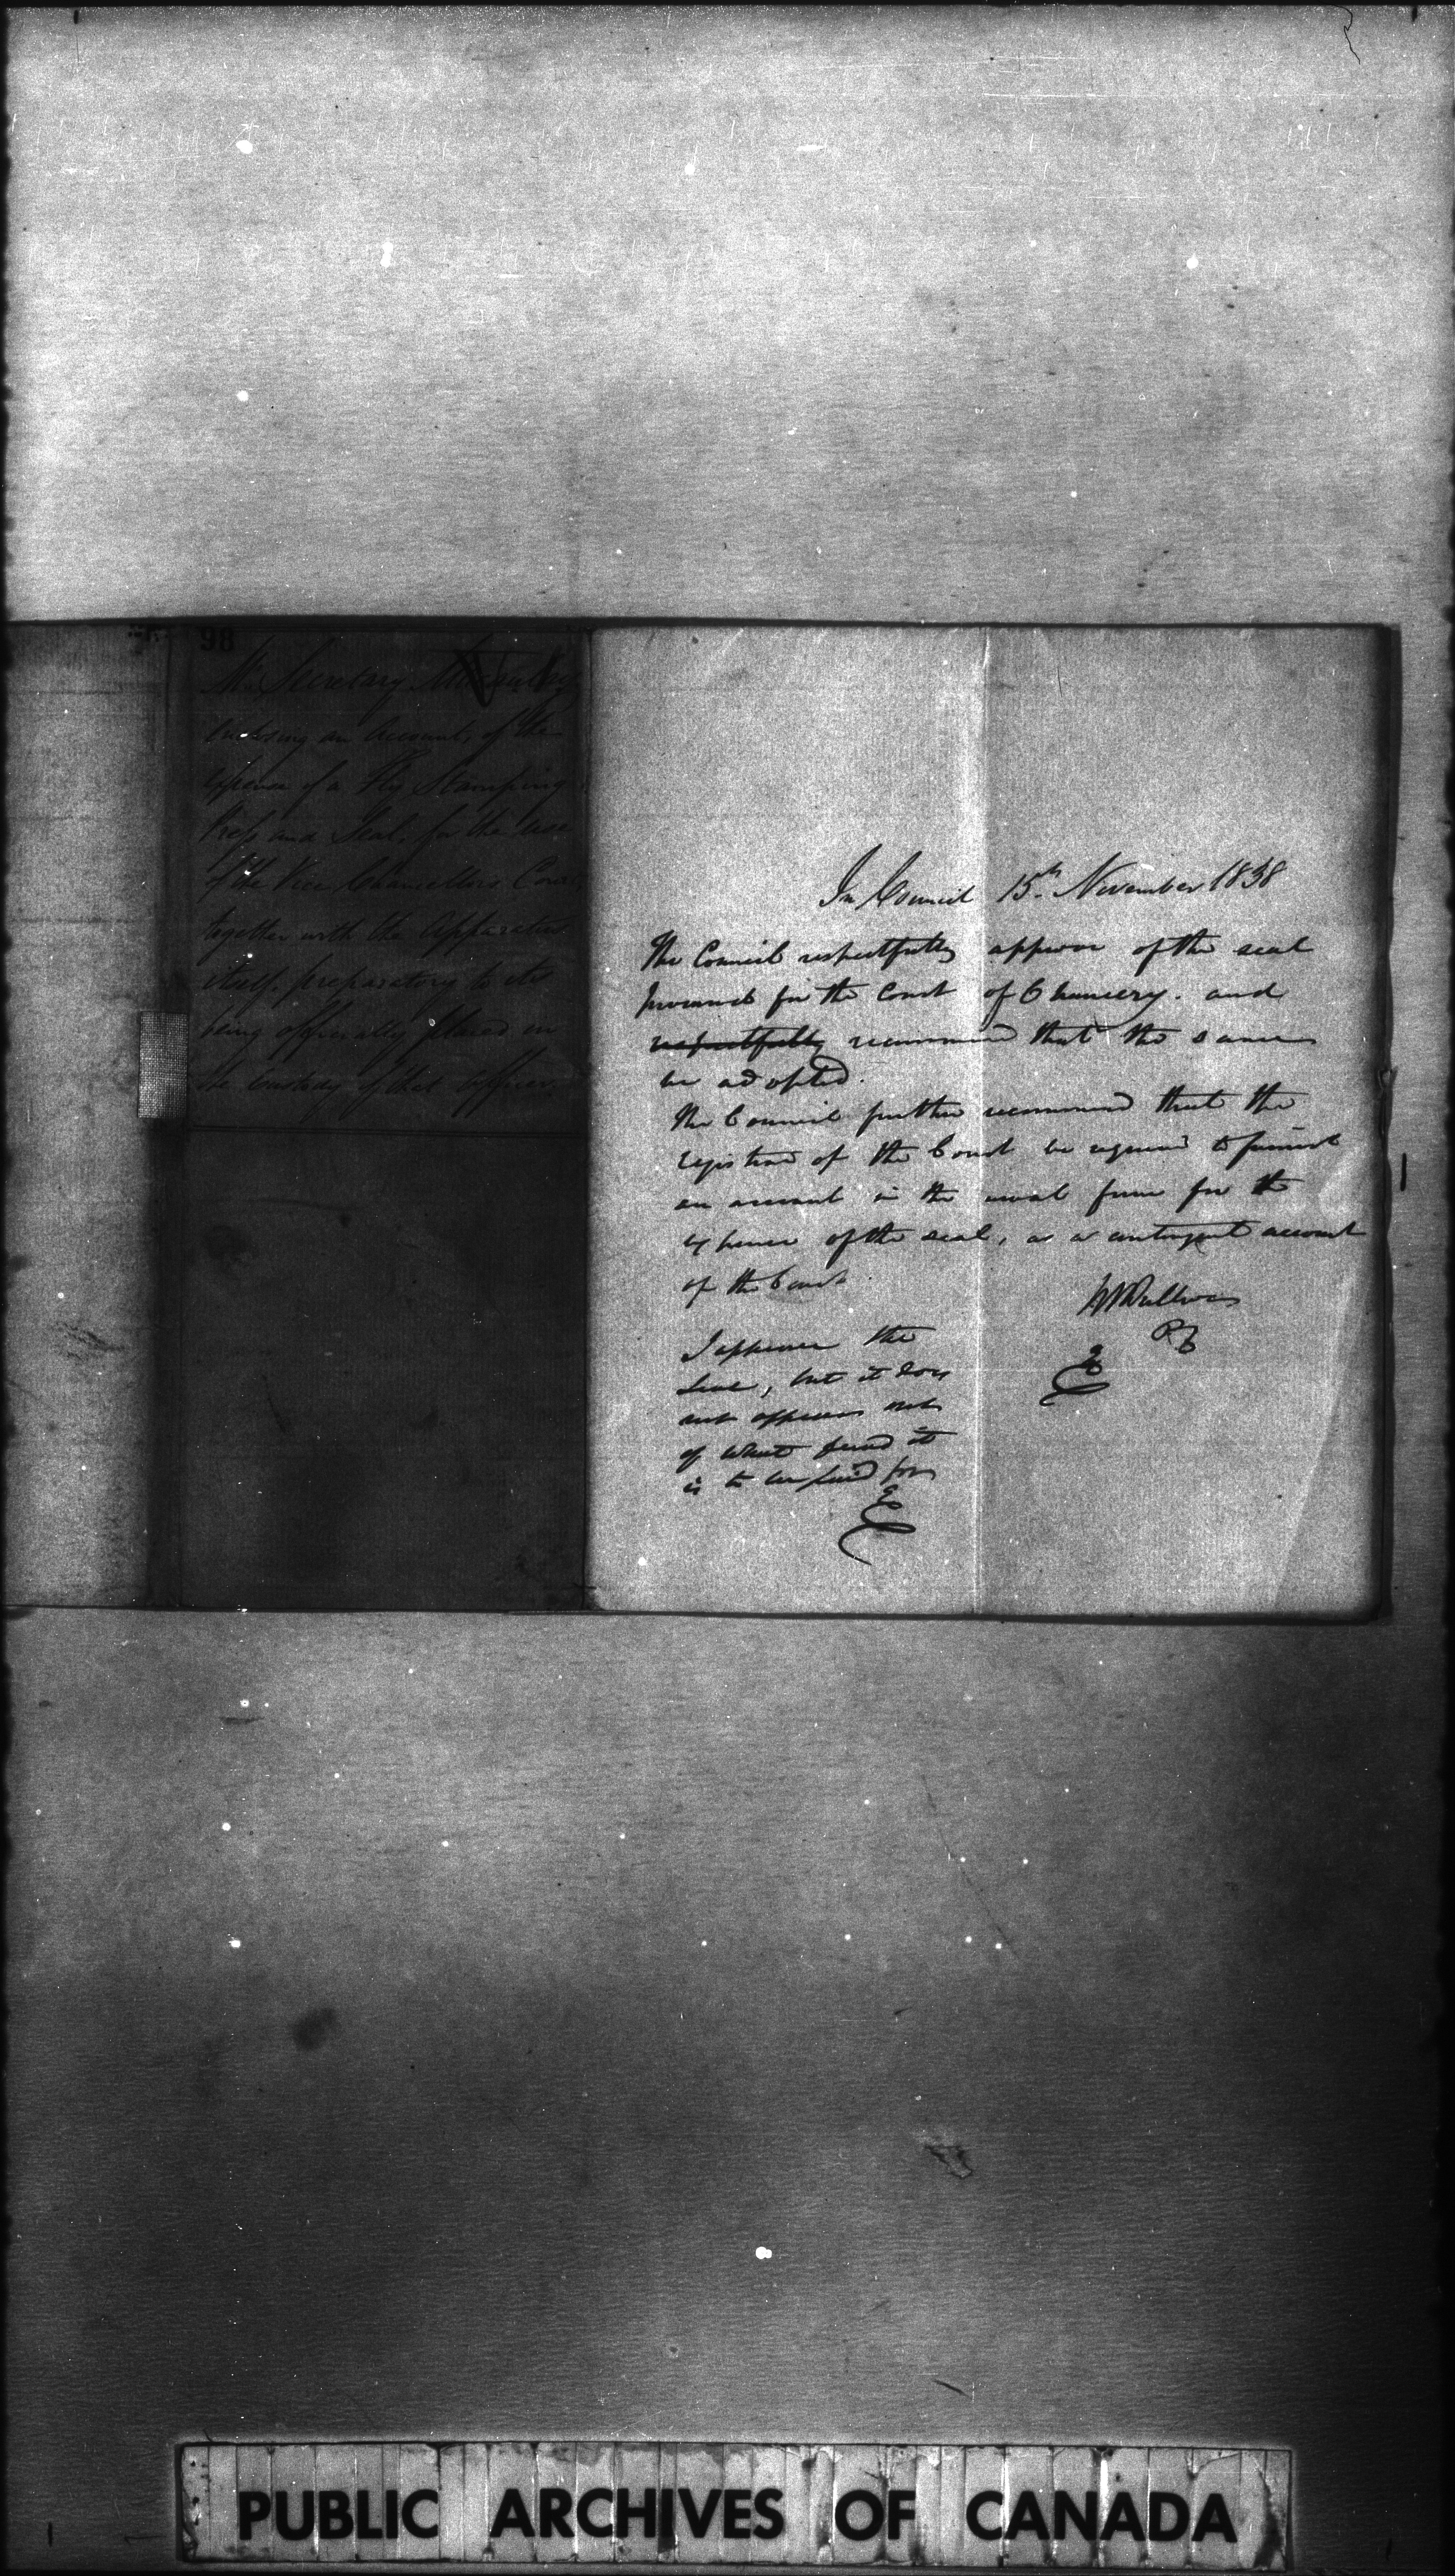 98
Mr Secretary
enclosing an Account, of the
expense of a Fly Stamping
Press and Seal, for the use
of the Vice Chancellors Court,
together with the Apparatus
itself, preparatory to its
being officially placed in
the Custody of that officer.
In Council 15th November 1838
The Council respectfully approve of the seal
procured for the Court of Chancery. and
respectfully recommend that the same
be adopted.
The Council further recommend that the
registrar of the Court be required to furnish
an account in the usual form for the
expense of the seal, as a contingent account
of the Court.
RBSullivan
PC
I approve the
Seal, but it does
not appear out
of what fund it
is to be paid for
PUBLIC ARCHIVES OF CANADA